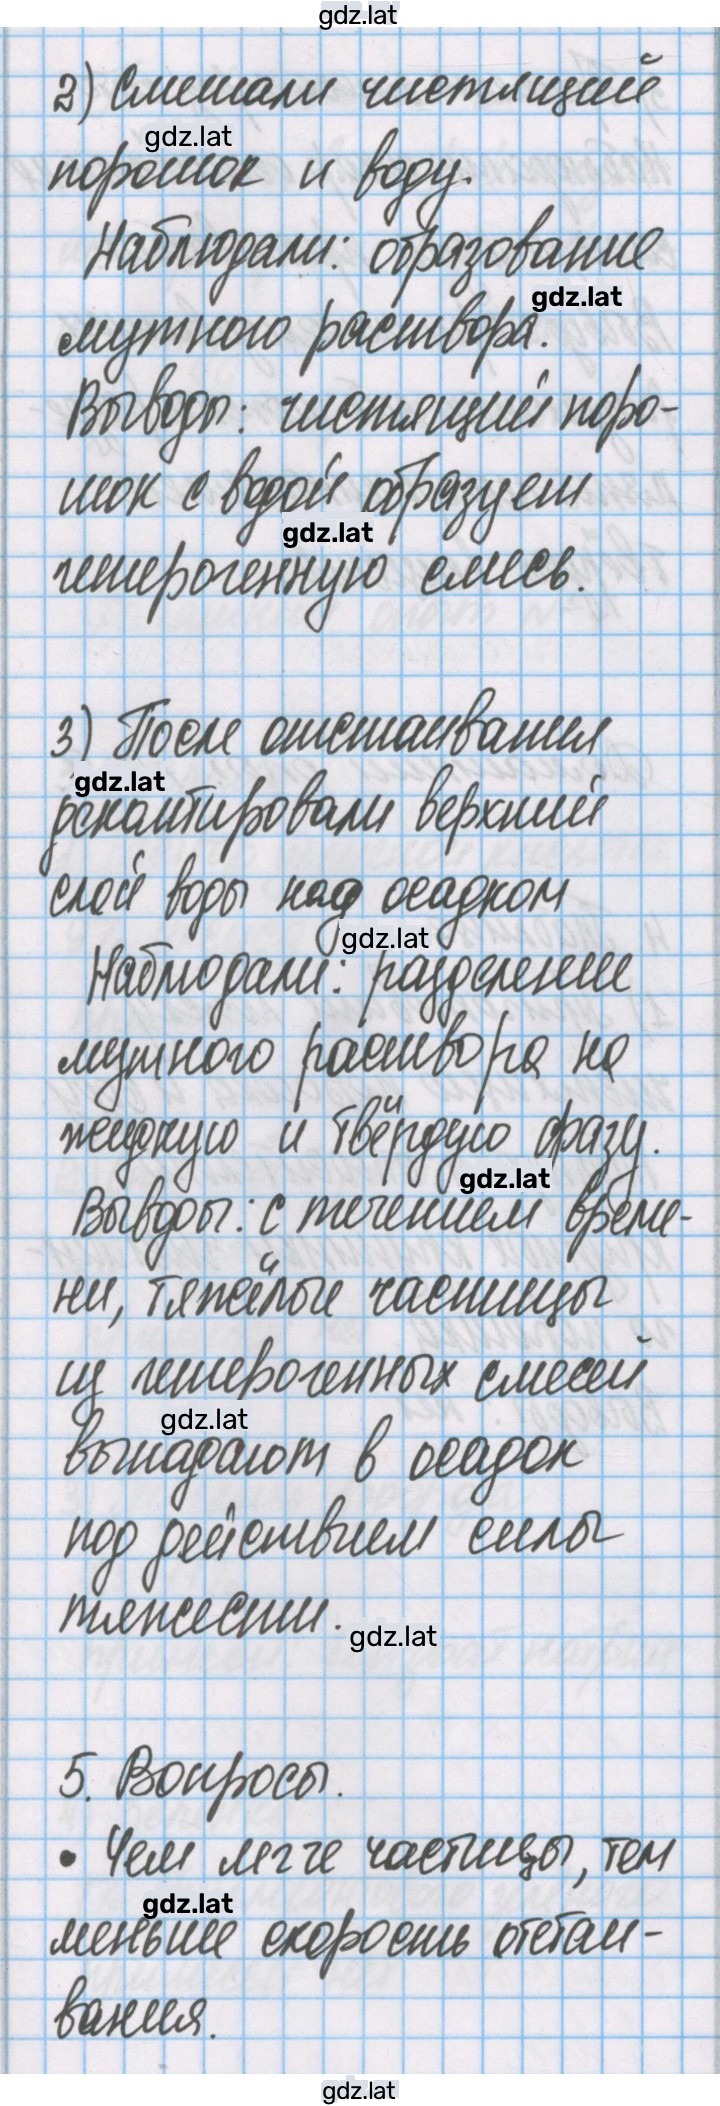 gdz.lat
2) Смешали чистящий
gdz.lat
порошок и воду.
Наблюдали: образование
gdz.lat
мутного раствора.
Выводы: чистящий поро-
шок с водой образует
gdz.lat
гетерогенную смесь.
3) После отстаивания
gdz.lat
декантировали верхний
слой воды над осадком
gdz.lat
Наблюдали: разделение
мутного раствора на
жидкую и твёрдую фазу.
gdz.lat
Выводы: с течением време-
ни, тяжёлые частицы
из гетерогенных смесей
gdz.lat
выпадают в осадок
под действием силы
тяжести.
gdz.lat
5. Вопросы.
• Чем легче частицы, тем
gdz.lat
меньше скорость отстаи-
вания.
gdz.lat